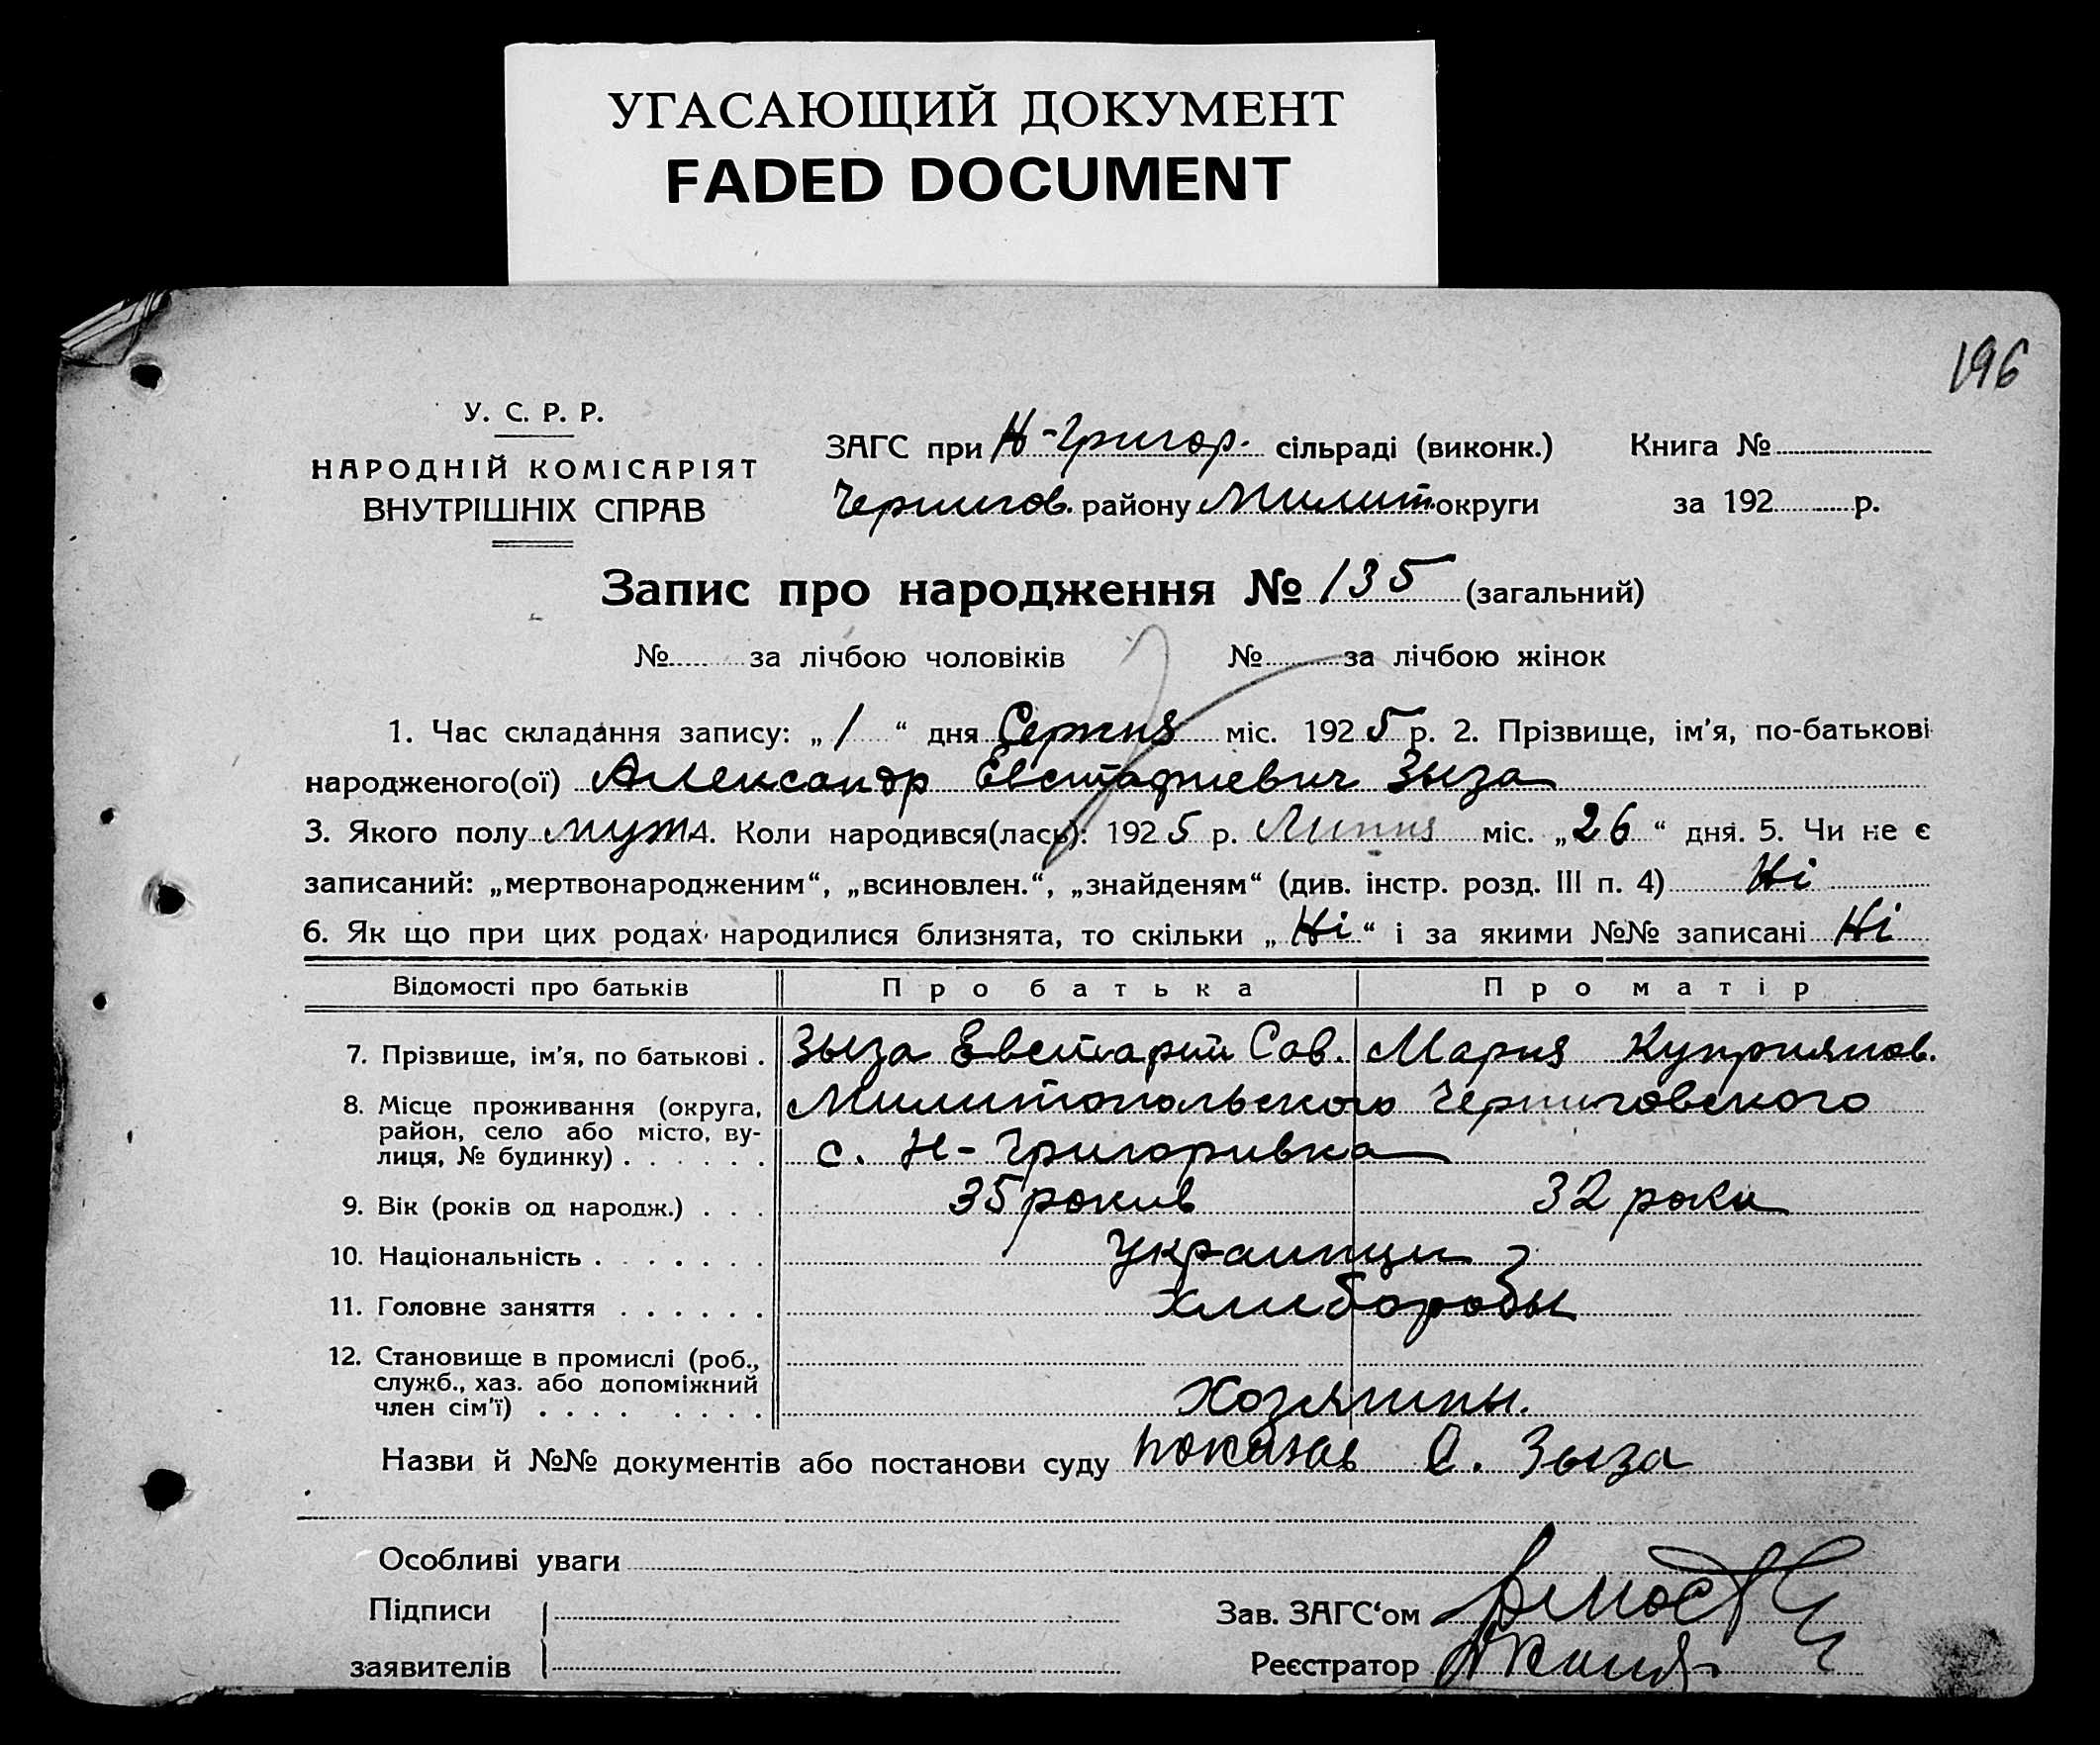 УГАСАЮЩИЙ ДОКУМЕНТ
FADED DOCUMENT
196
У. С. Р. Р.
НАРОДНІЙ КОМІСАРІЯТ
ВНУТРІШНІХ СПРАВ
ЗАГС при Н-Григор. сільраді (виконк.)
Книга №
Чернигов. району Милит. округи
за 192 р.
Запис про народження № 135 (загальний)
№ за лічбою чоловіків № за лічбою жінок
1. Час складання запису: „ 1 “ дня Серпня міс. 192 5 р. 2. Прізвище, ім'я, по-батькові
народженого(ої) Александр Евстафиевич Зыза
3. Якого полу муж 4. Коли народився(лась): 192 5 р. Липня міс. „ 26 “ дня. 5. Чи не є
записаний: „мертвонародженим“, „всиновлен.“, „знайденям“ (див. інстр. розд. III п. 4) Ні
6. Як що при цих родах народилися близнята, то скільки „ Ні “ і за якими №№ записані Ні
Відомості про батьків Про батька Про матір
7. Прізвище, ім'я, по батькові . Зыза Евстафий Сав. Мария Куприянов.
8. Місце проживання (округа, Милитопольского Черниговского
район, село або місто, ву-
лиця, № будинку) . . . . . . с. Н-Григоривка
9. Вік (років од народж.) . . . 35 рокив 32 роки
10. Національність . . . . . . . Украинци
11. Головне заняття . . . . . . Хлибороби
12. Становище в промислі (роб.,
служб., хаз. або допоміжний
член сім'ї) . . . . . . . . Хозяины.
Назви й №№ документів або постанови суду показав Зыза
Особливі уваги
Підписи
Зав. ЗАГС‘ом
заявителів
Реєстратор